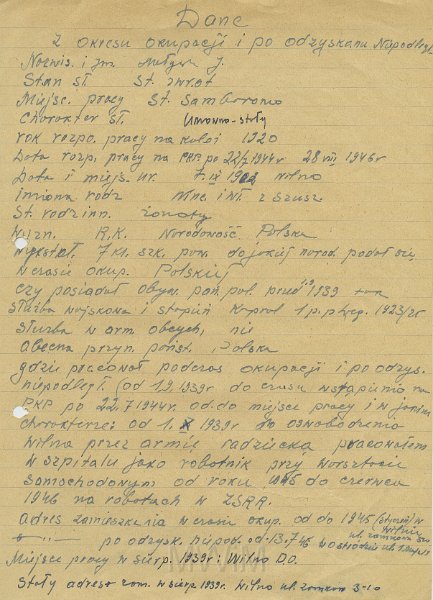 Dane
z okresu okupacji i po odzyskaniu Niepodległ.
Nazwis. i im. J.
Stan sł. St. zwrot.
Miejsc. pracy St. Samborowo
Charakter sł. Umowno-stały
rok rozpo. pracy na kolei 1920
Data rozp. pracy na PKP. po 22/7 1944r 28 VIII 1946r
Data i miejs. ur. Wilno
imiona rodz z Szusz
St. rodzinn. żonaty
Wyzn. R.K. Narodowość Polska
Wykształ. 7 kl. szk. pow. do jakiej narod. podał się
w czasie okup. Polskiej
czy posiadał obyw. pań. pol. przed 1.9 1939
służba wojskowa i stopień Kapral 1 p.p. Leg. 1923/25
służba w arm. obcych, nie
obecna przyn. państ. Polska
gdzie pracował podczas okupacji i po odzys.
niepodległ. (od 1.9.1939r do czasu wstąpienia na
PKP po 22.7.1944r. od. do miejsce pracy i w jakim
charakterze: od 1. X 1939r do oswobodzenia
Wilna przez armię radziecką pracowałem
w szpitalu jako robotnik przy warsztacie
samochodowym od roku 1945 do czerwca
1946 na robotach w ZSRR.
adres zamieszkania w czasie okup. od do 1945 (styczeń) w Wilnie
ul. zamkowa
po odzysk. niepod. od 13.7.46 w Ostródzie
Miejsce pracy w sierp. 1939r: Wilno D.O.
Stały adres zam. w sierp. 1939r. Wilno ul. zamkowa 3-10